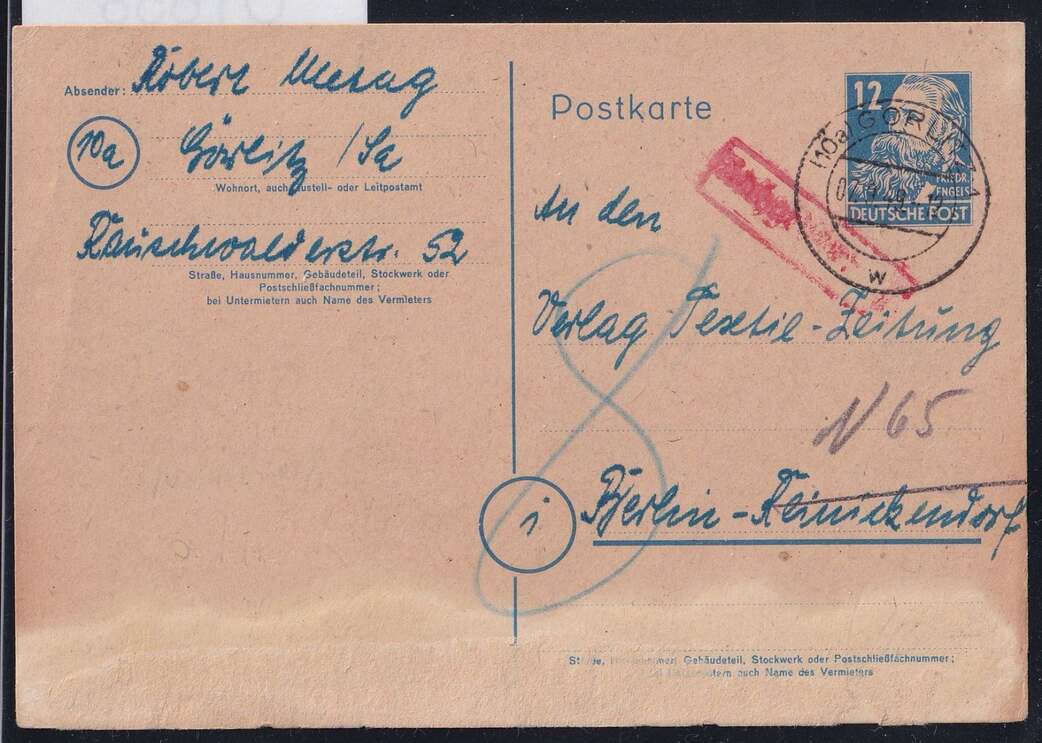 Absender: Robert
10a Görlitz /Sa
Wohnort, auch Zustell- oder Leitpostamt
Rauschwalderstr. 52
Straße, Hausnummer, Gebäudeteil, Stockwerk oder
Postschließfachnummer;
bei Untermietern auch Name des Vermieters
Postkarte
12
FRIEDR.
ENGELS
DEUTSCHE POST
(10a) GÖRLITZ 1
w
An den
Verlag Textil-Zeitung
N 65
8
Berlin-Reinickendorf
Gebäudeteil, Stockwerk oder Postschließfachnummer;
auch Name des Vermieters